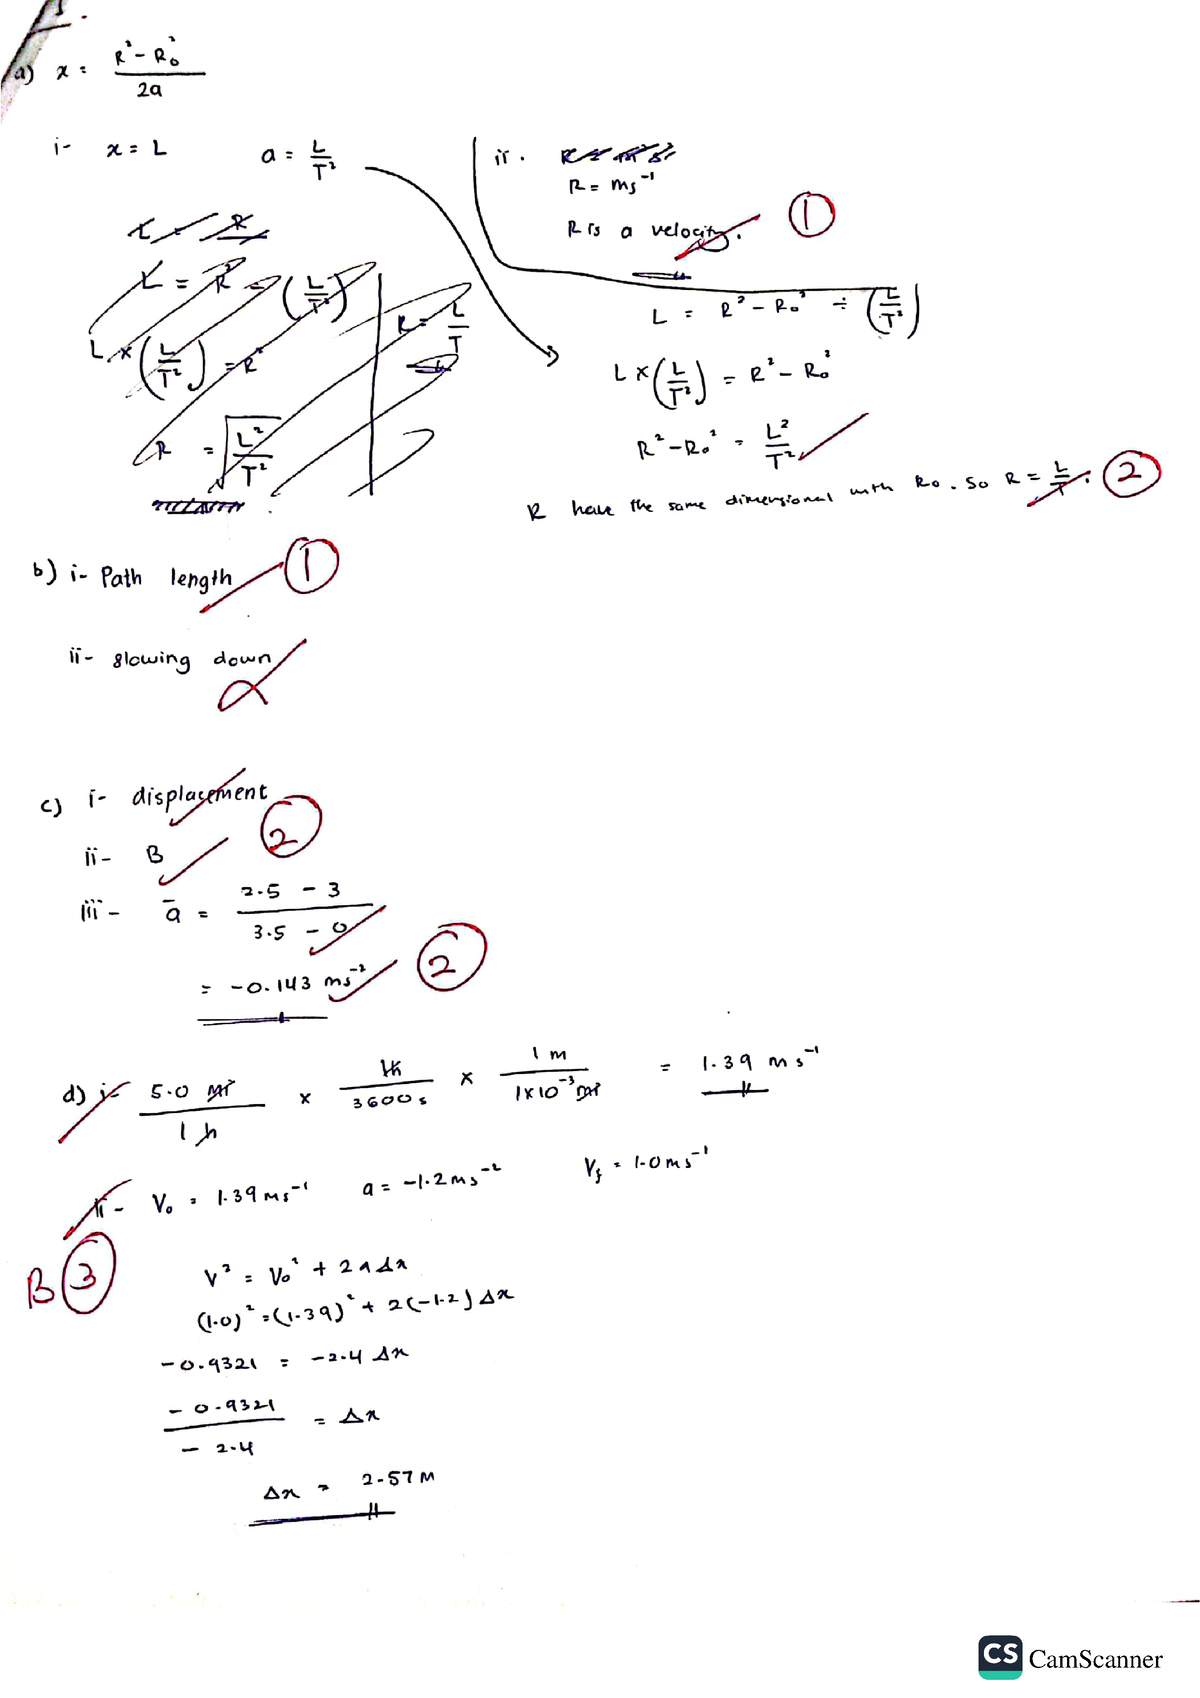 a) x = R² - R₀² / 2a
i- x = L a = L/T²
ii. R = ms⁻¹
R is a velocity. 1
L = R² - R₀² ÷ (L/T²)
L × (L/T²) = R² - R₀²
R² - R₀² = L²/T²
R have the same dimensional with R₀. So R = L/T. 2
L = R² = (L/T²)
L × (L/T²) = R²
R = √L²/T²
R = L/T
b) i- Path length 1
ii- slowing down
c) i- displacement
2
ii- B
iii- ā = 2.5 - 3 / 3.5 - 0
= -0.143 ms⁻² 2
d) i- 5.0 / 1 h × 1h / 3600 s × 1 m / 1×10⁻³ = 1.39 ms⁻¹
ii- V₀ = 1.39 ms⁻¹ a = -1.2 ms⁻² Vf = 1.0 ms⁻¹
B 3
V² = V₀² + 2aΔx
(1.0)² = (1.39)² + 2(-1.2)Δx
-0.9321 = -2.4 Δx
-0.9321 / -2.4 = Δx
Δx = 2.57 M
CS CamScanner